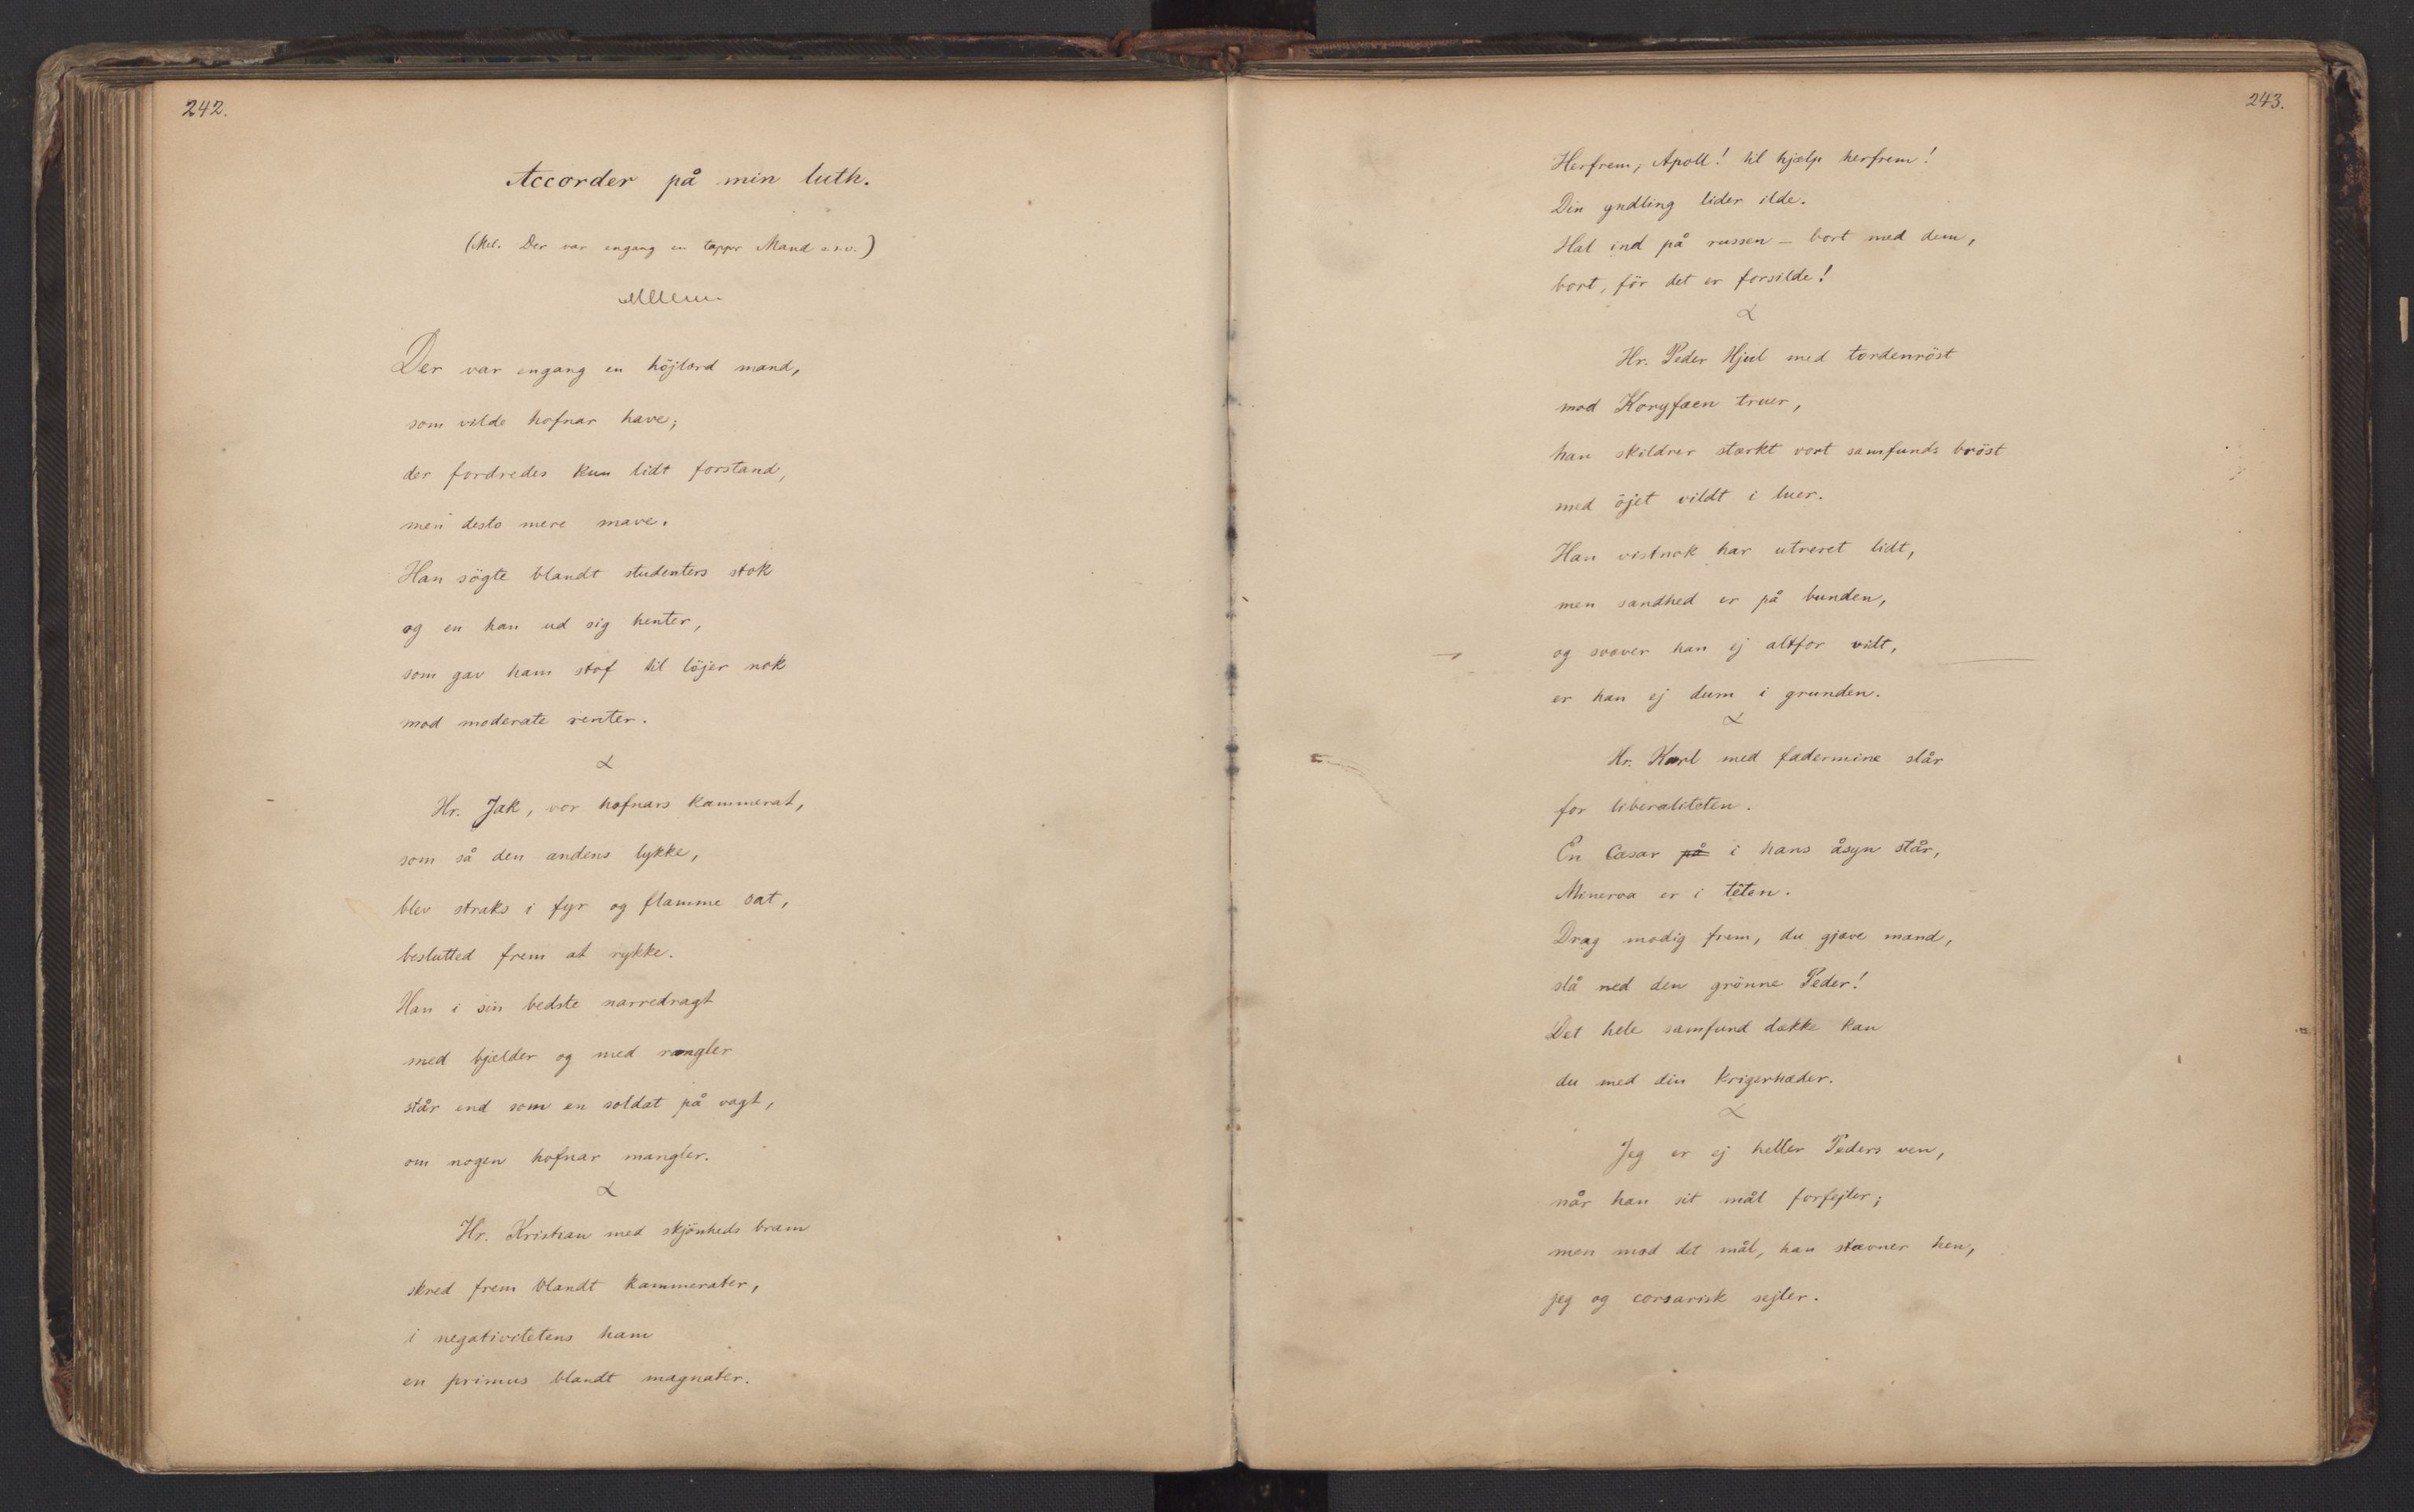 242.
Accorder på min luth.
(Mel. Der var engang en tapper Mand o.s.v.)
Der var engang en höjlærd mand,
som vilde hofnar have;
der fordredes kun lidt forstand,
men desto mere mave.
Han sögte blandt studenters stok
og en han ud sig henter,
som gav ham stof til löjer nok
mod moderate renter.
Hr. Jak, vor hofnars kammerat,
som så den andens lykke,
blev straks i fyr og flamme sat,
beslutted frem at rykke.
Han i sin bedste narredragt
med bjælder og med rangler
står end som en soldat på vagt,
om nogen hofnar mangler.
Hr. Kristian med skjönheds bram
skred frem blandt kammerater,
i negativitetens ham
en primus blandt magnater.
243.
Herfrem, Apoll! til hjælp herfrem!
Din yndling lider ilde.
Hal ind på russen – bort med dem,
bort, för det er forsilde!
Hr. Peder Hjul med tordenröst
mod Koryfæen truer,
han skildrer stærkt vort samfunds bröst
med öjet vildt i luer.
Han vistnok har utreret lidt,
men sandhed er på bunden,
og svæver han ej altfor vidt,
er han ej dum i grunden.
Hr. Karl med fadermine slår
for liberaliteten.
En Cæsar på i hans åsyn står,
Minerva er i têten.
Drag modig frem, du gjæve mand,
slå ned den grönne Peder!
Det hele samfund dække kan
du med din krigerhæder.
Jeg er ej heller Peders ven,
når han sit mål forfejler;
men mod det mål, han stævner hen,
jeg og corsarisk sejler.